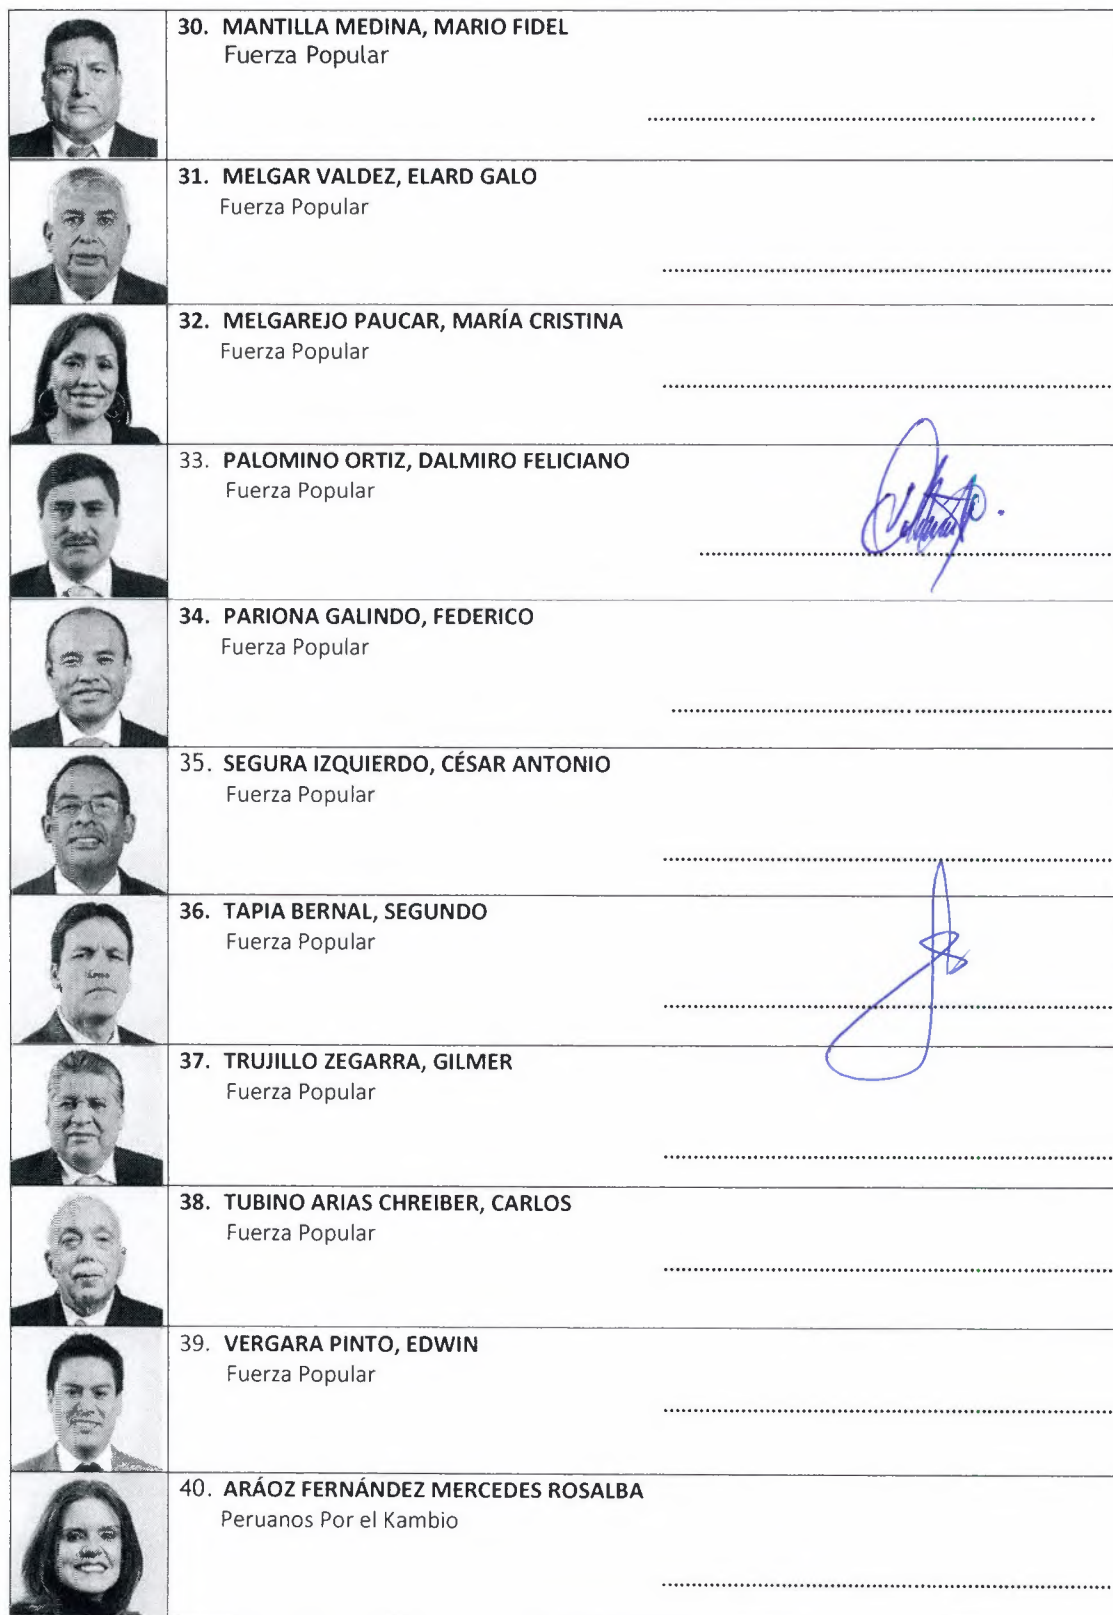 30. MANTILLA MEDINA, MARIO FIDEL
Fuerza Popular
31. MELGAR VALDEZ, ELARD GALO
Fuerza Popular
32. MELGAREJO PAUCAR, MARÍA CRISTINA
Fuerza Popular
33. PALOMINO ORTIZ, DALMIRO FELICIANO
Fuerza Popular
34. PARIONA GALINDO, FEDERICO
Fuerza Popular
35. SEGURA IZQUIERDO, CÉSAR ANTONIO
Fuerza Popular
36. TAPIA BERNAL, SEGUNDO
Fuerza Popular
37. TRUJILLO ZEGARRA, GILMER
Fuerza Popular
38. TUBINO ARIAS CHREIBER, CARLOS
Fuerza Popular
39. VERGARA PINTO, EDWIN
Fuerza Popular
40. ARÁOZ FERNÁNDEZ MERCEDES ROSALBA
Peruanos Por el Kambio